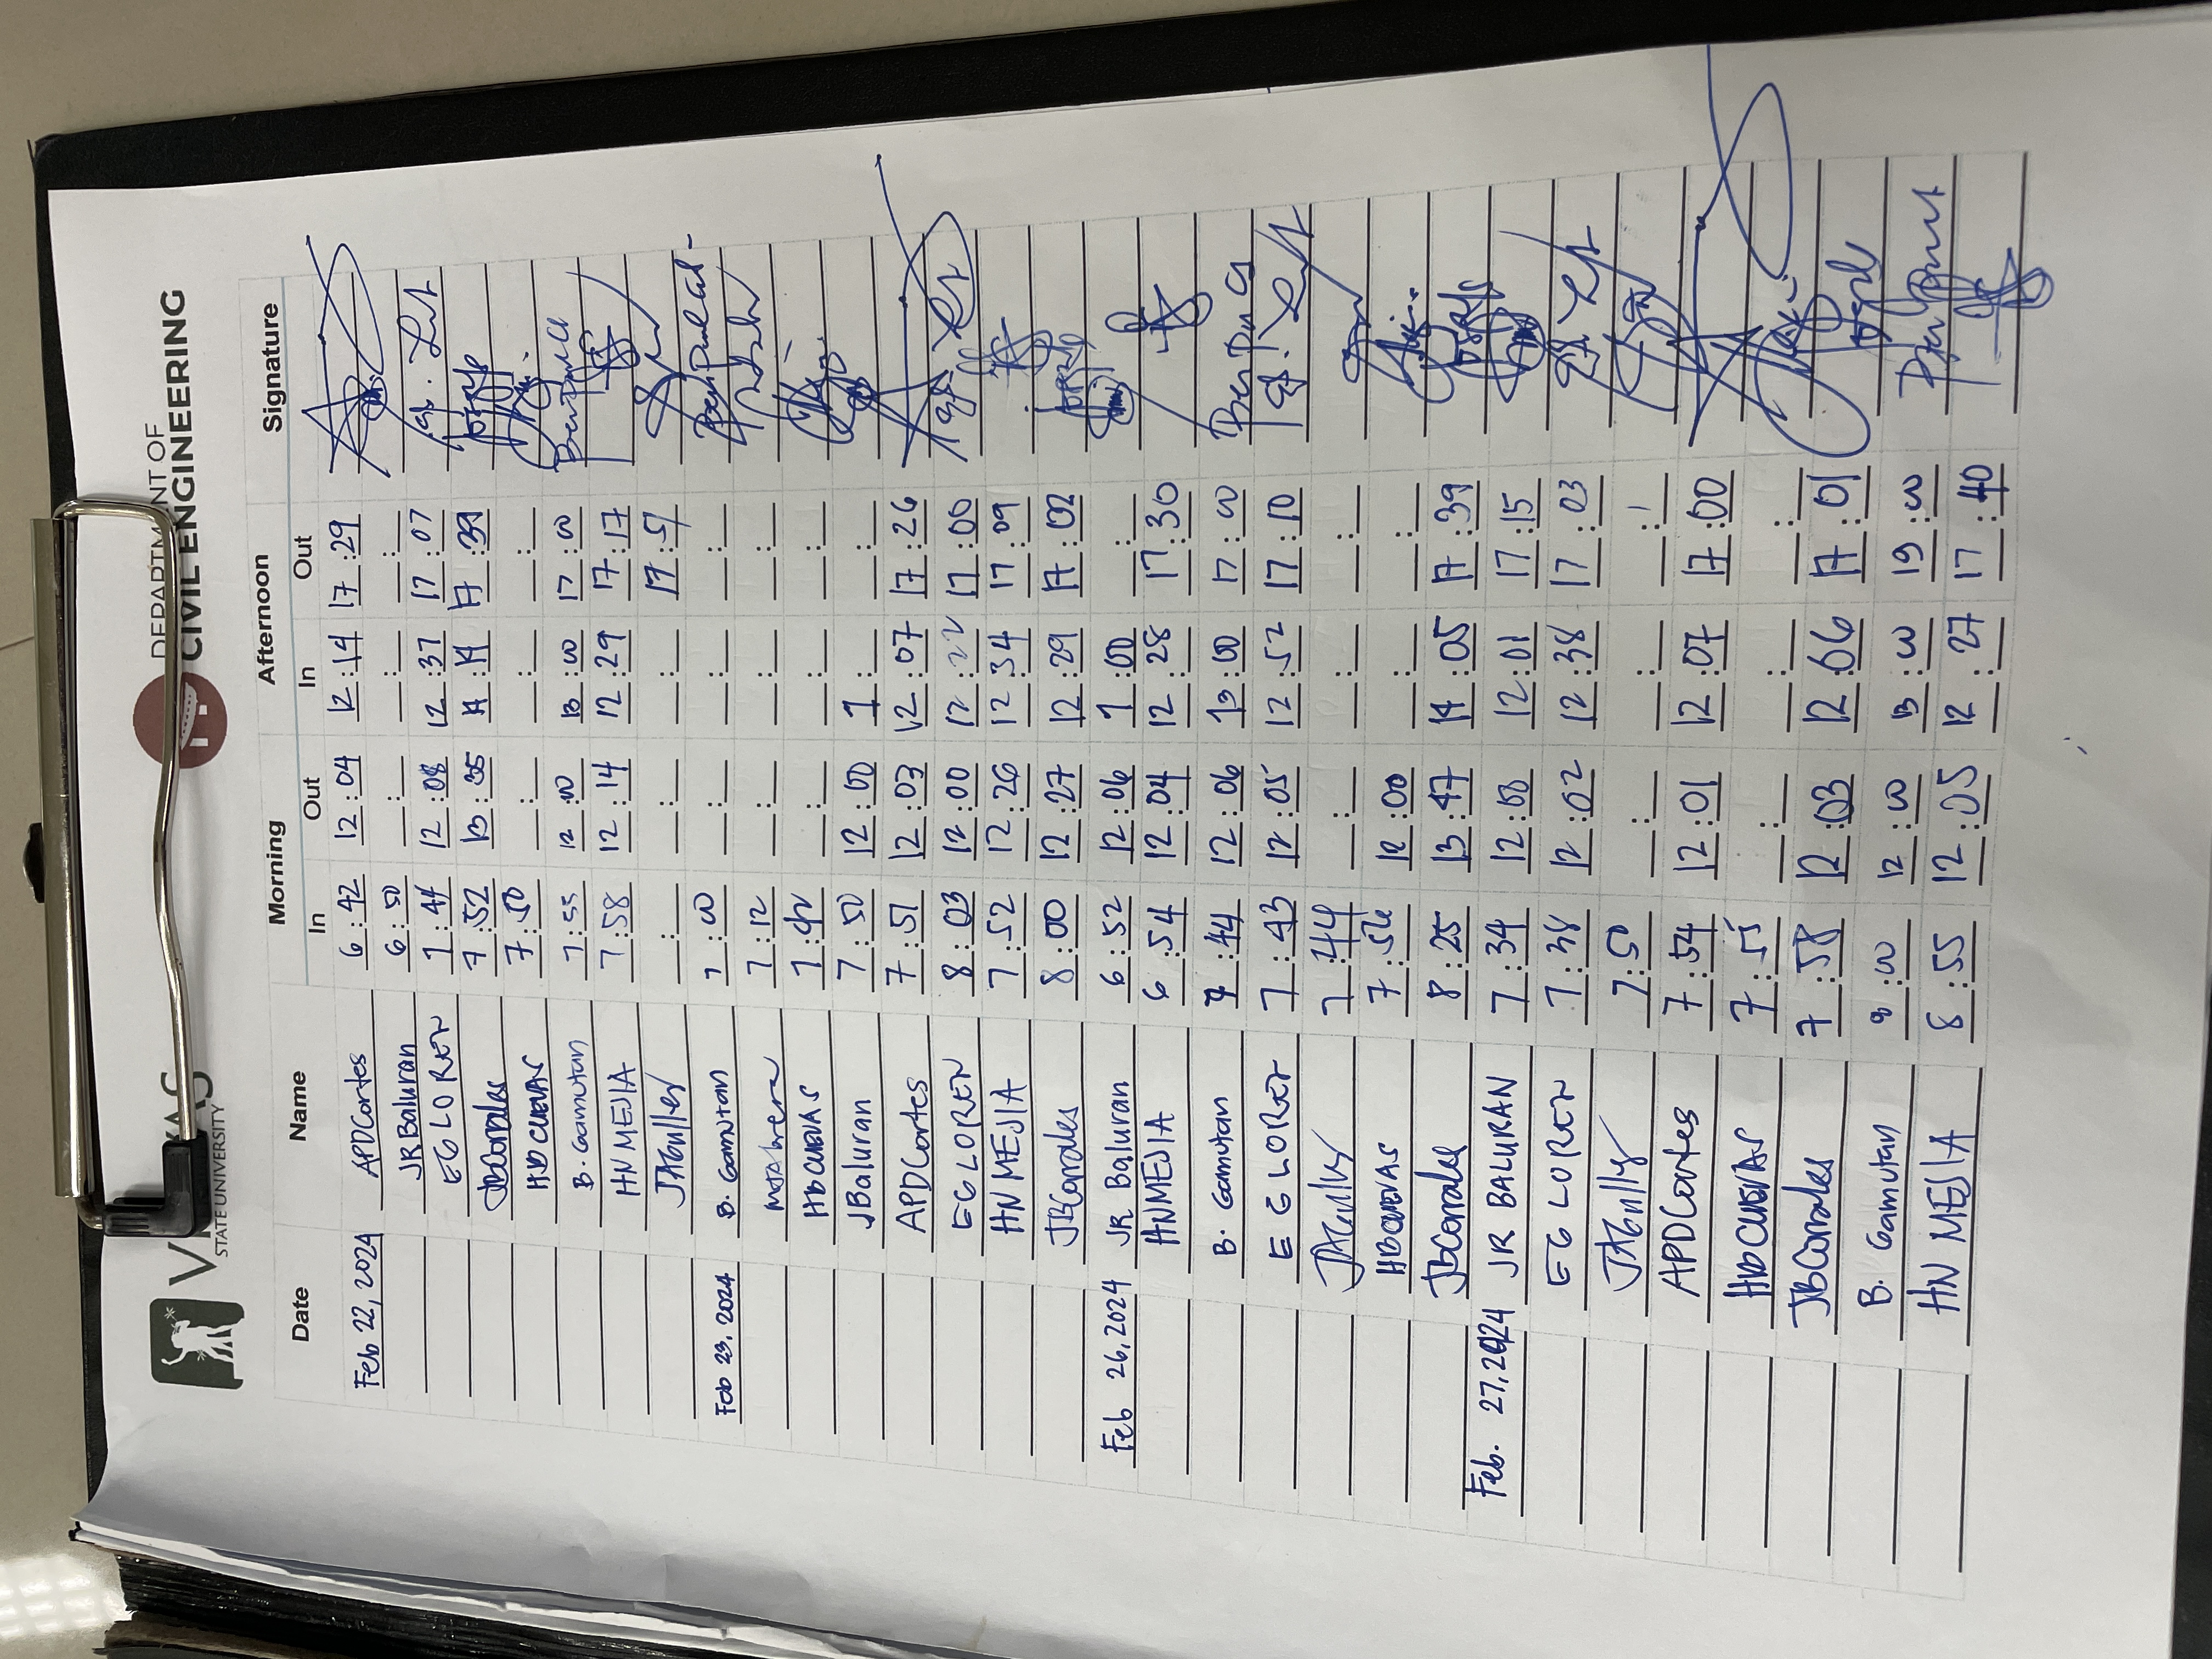 STATE UNIVERSITY
DEPARTMENT OF
CIVIL ENGINEERING
Date Name Morning Afternoon Signature
In Out In Out
Feb 22, 2024 APDCortes 6:42 12:04 12:14 17:29
JR Baluran 6:50 __:__ __:__ __:__
EG LOREN 7:44 12:08 12:37 17:07
JBCorrales 7:52 13:35 14:14 17:39
HD CUEVAS 7:50 __:__ __:__ __:__
B. Gamutan 7:55 12:00 13:00 17:00
HN MEJIA 7:58 12:14 12:29 17:17
__:__ __:__ __:__ 17:51
Feb 23, 2024 B. Gamutan 7:00 __:__ __:__ __:__
7:12 __:__ __:__ __:__
HD CUEVAS 7:42 __:__ __:__ __:__
JBaluran 7:50 12:00 1
APDCortes 7:51 12:03 12:07 17:26
EG LOREN 8:03 12:00 12:22 17:00
HN MEJIA 7:52 12:26 12:34 17:09
JBCorrales 8:00 12:27 12:29 17:02
Feb 26, 2024 JR Baluran 6:52 12:06 1:00 __:__
HNMEJIA 6:54 12:04 12:28 17:30
B. Gamutan 7:44 12:06 13:00 17:00
EG LOREN 7:43 12:05 12:52 17:10
7:44 __:__ __:__ __:__
HD CUEVAS 7:56 12:00 __:__
JBCorrales 8:25 13:47 14:05 17:39
Feb. 27, 2024 JR BALURAN 7:34 12:00 12:01 17:15
EG LOREN 7:38 12:02 12:38 17:03
7:50 __:__ __:__ __:__
APDCortes 7:54 12:01 12:07 17:00
HD CUEVAS 7:55 __:__ __:__ __:__
JBCorrales 7:58 12:03 12:06 17:01
B. Gamutan 8:00 12:00 13:00 19:00
HN MEJIA 8:55 12:05 12:27 17:40